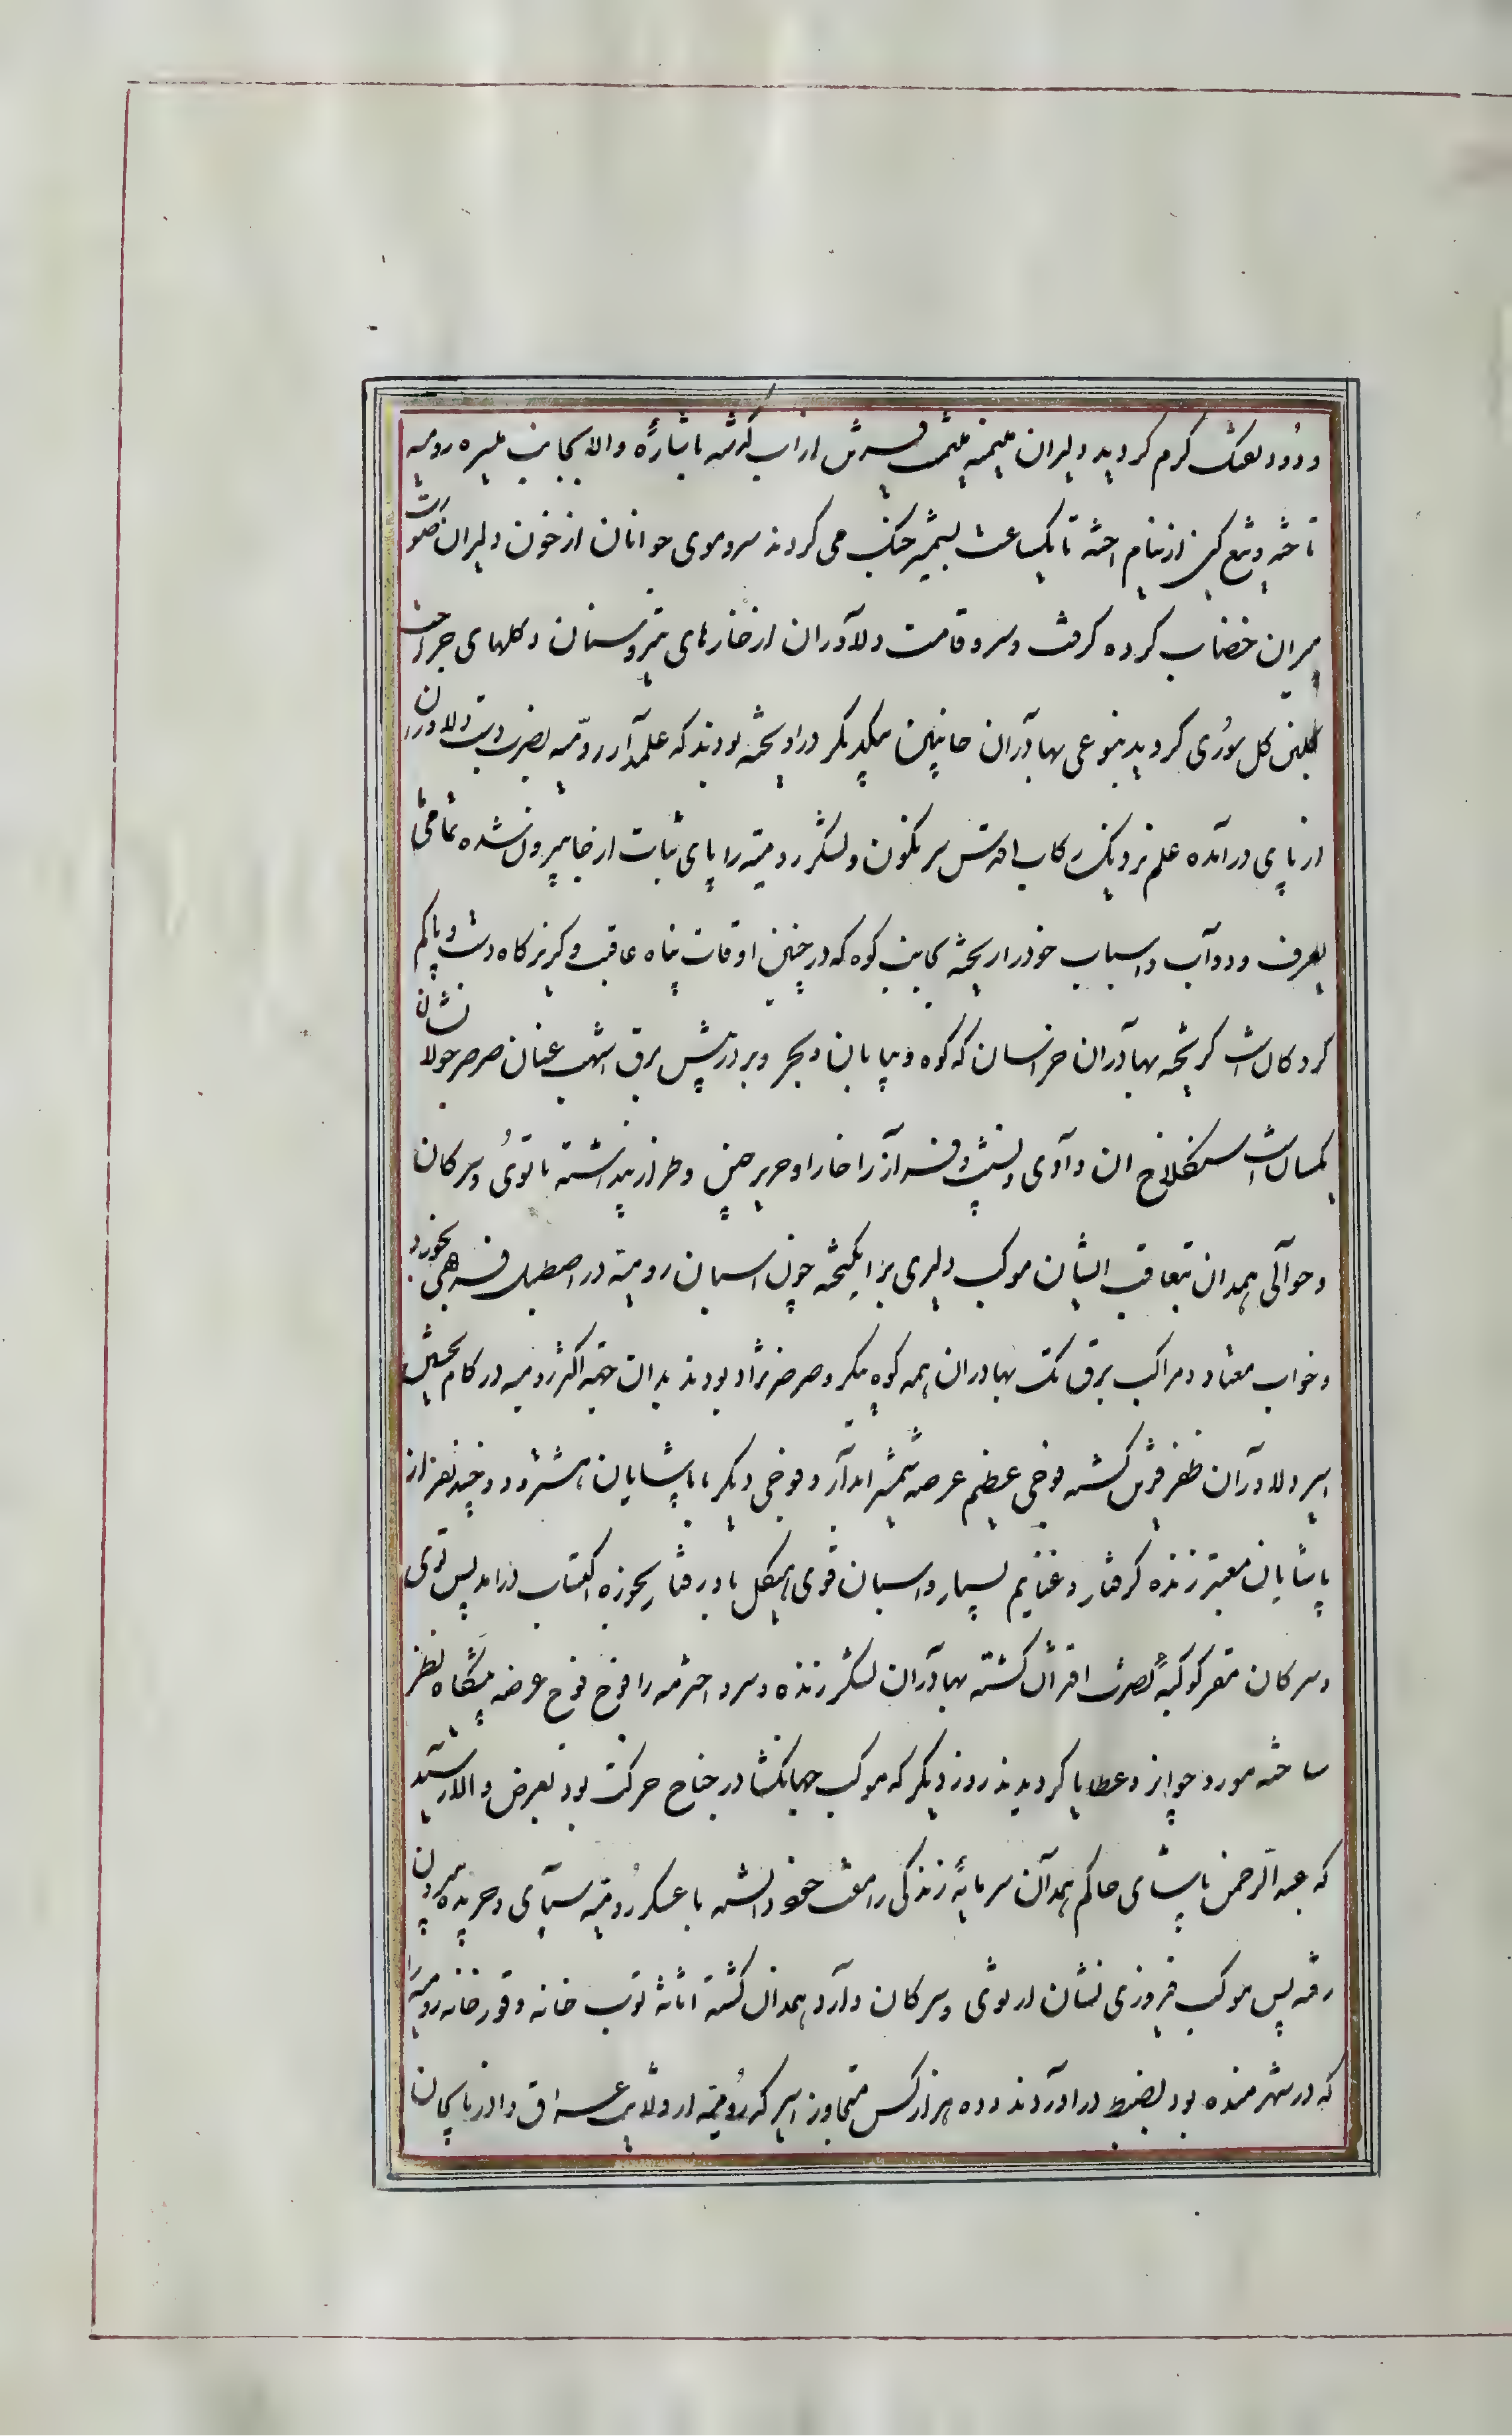 و دود تفنک کرم کردید دلیران میمنه میمنت فیروزش از آب کذشته باشارهٔ والا بجانب میسره رومیه
تاخته و تیغ کین از نیام اخته تا یکساعت بشمشیر جنک می کردند سر و موی جوانان از خون دلیران صورت
پیران خضاب کرده کرفت و سرو قامت دلاوران از خارهای تیر و سنان و کلهای جراحت
کلبن کل سوری کردید بنوعی بهادران جانبین بیکدیکر در اویخته بودند که علمدار رومیه بضرب دست دلاوران
از پای در آمده علم نزدیک رکاب اقدس سر نکون و لشکر رومیه را پای ثبات از جا بیرون شده تمامی
بعرف و دواب و اسباب خود را ریخته بجانب کوه که در چنین اوقات پناه عاقبت و کریزکاه دست و پا کم
کردکان است کریخته بهادران خراسان که کوه و بیابان و بحر و بر در پیش برق اشهب عنان صرصر جولانشان
یکسان است سنکلاخ ان وادی و نشیب و فراز را خارا و حریر چین و طراز پنداشته تا توی و سرکان
و حوالی همدان بتعاقب ایشان موکب دلیری بر انکیخته چون اسبان رومیه در اصطبل فربهی بخورد
و خواب معتاد و مراکب برق تک بهادران همه کوه پیکر و صرصر نژاد بودند بدان جهة اکثر رومیه در کام نخستین
اسیر دلاوران ظفر قرین کشته فوجی عظیم عرصه شمشیر ابدار و فوجی دیکر با پاشایان هشترود و چند نفر از
پاشایان معتبر زنده کرفتار و غنایم بسیار و اسبان قوی هیکل باد رفتار بحوزه اکتساب درامد پس توی
و سرکان مقر کوکبهٔ نصرت اقتران کشته بهادران لشکر زنده و سر و اخترمه را فوج فوج عرضه پیشکاه نظر
ساخته مورد جوایز و عطایا کردیدند روز دیکر که موکب جهانکشا در جناح حرکت بود بعرض والا رسید
که عبد الرحمن پاشای حاکم همدان سرمایهٔ زندکی را مغتنم دانسته با عسکر رومیه سیبای و جریده بیرون
رفته پس موکب فیروزی نشان از توی و سرکان وارد همدان کشته اثاثهٔ توب خانه و قورخانه رومیه را
که در شهر مانده بود بضبط در اوردند و ده هزار کس متجاوز اسیر که رومیه از ولایت عراق و اذربایجان